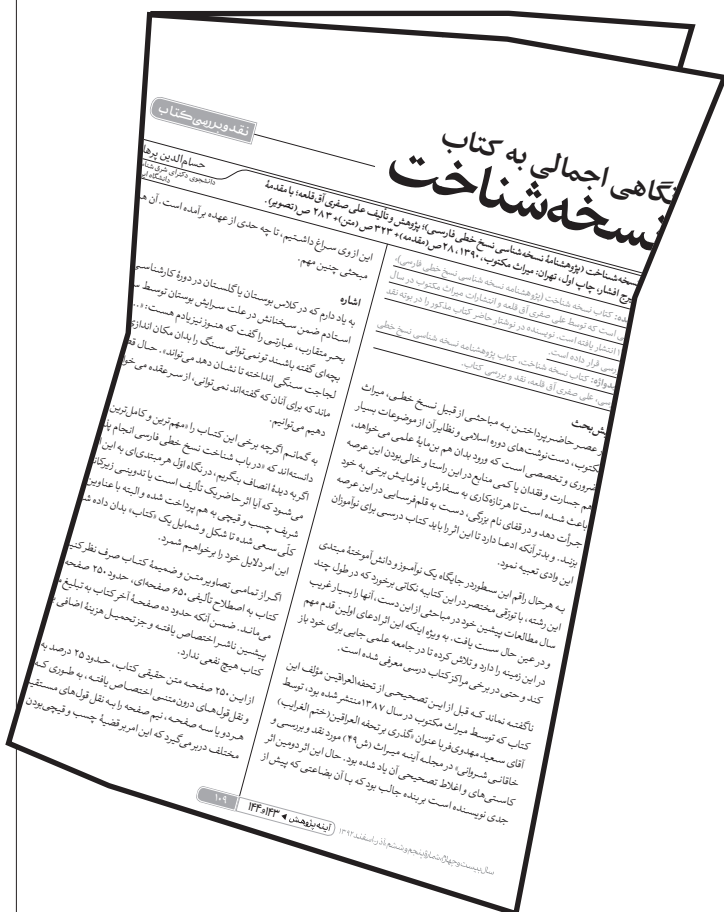 نقد و بررسی کتاب
نگاهی اجمالی به کتاب
نسخه‌شناخت
حسام‌الدین
دانشجوی دکترای شرق
دانشگاه
نسخه‌شناخت (پژوهشنامهٔ نسخه‌شناسی نسخ خطی فارسی)؛ پژوهش و تألیف علی صفری آق قلعه؛ با مقدمهٔ
ایرج افشار، چاپ اول، تهران: میراث مکتوب، ۱۳۹۰، ۲۸ص (مقدمه) + ۳۲۳ ص (متن) + ۲۸۳ ص (تصویر).
کتاب نسخه شناخت (پژوهشنامه نسخه شناسی نسخ خطی فارسی)،
است که توسط علی صفری آق قلعه و انتشارات میراث مکتوب در سال
انتشار یافته است. نویسنده در نوشتار حاضر کتاب مذکور را در بوته نقد
قرار داده است.
کتاب نسخه شناخت، کتاب پژوهشنامه نسخه شناسی نسخ خطی
علی صفری آق قلعه، نقد و بررسی کتاب.
عصر حاضر پرداختن به مباحثی از قبیل نسخ خطی، میراث
مکتوب، دست‌نوشت‌های دوره اسلامی و نظایر آن از موضوعات بسیار
ضروری و تخصصی است که ورود بدان هم بن‌مایهٔ علمی می‌خواهد،
هم جسارت و فقدان یا کمی منابع در این راستا و خالی‌بودن این عرصه
باعث شده است تا هر تازه‌کاری به سفارش یا فرمایش برخی به خود
جرأت دهد و در قفای نام بزرگی، دست به قلم‌فرسایی در این عرصه
بزند. و بدتر آنکه ادعا دارد تا این اثر را باید کتاب درسی برای نوآموزان
این وادی تعبیه نمود.
به هر حال راقم این سطور در جایگاه یک نوآموز و دانش‌آموختهٔ مبتدی
این رشته، با تورّقی مختصر در این کتاب به نکاتی برخورد که در طول چند
سال مطالعات پیشین خود در مباحثی از این دست، آنها را بسیار غریب
و در عین حال سست یافت. به ویژه اینکه این اثر ادعای اولین قدم مهم
در این زمینه را دارد و تلاش کرده تا در جامعه علمی جایی برای خود باز
کند و حتی در برخی مراکز کتاب درسی معرفی شده است.
ناگفته نماند که قبل از این تصحیحی از تحفه‌العراقین مؤلف این
کتاب که توسط میراث مکتوب در سال ۱۳۸۷ منتشر شده بود، توسط
آقای سعید مهدوی‌فر با عنوان «گذری بر تحفه العراقین (ختم الغرایب)
خاقانی شروانی» در مجله آینه میراث (ش۴۹) مورد نقد و بررسی و
کاستی‌های و اغلاط تصحیحی آن یاد شده بود. حال این اثر دومین اثر
جدی نویسنده است. بر بنده جالب بود که با آن بضاعتی که پیش از
این از وی سراغ داشتیم، تا چه حدی از عهده برآمده است. آن هم
مبحثی چنین مهم.
اشاره
به یاد دارم که در کلاس بوستان یا گلستان در دورهٔ کارشناسی
استادم ضمن سخنانش در علت سرایش بوستان توسط
بحر متقارب، عبارتی را گفت که هنوز نیز یادم هست: «...
بچه‌ای گفته باشند تو نمی‌توانی سنگ را بدان مکان اندازی
لجاجت سنگی انداخته تا نشان دهد می‌تواند». حال
ماند که برای آنان که گفته‌اند نمی‌توانی، از سر عقده
دهیم می‌توانیم.
به گمانم اگرچه برخی این کتاب را «مهم‌ترین و کامل‌ترین
دانسته‌اند که «در باب شناخت نسخ خطی فارسی انجام
اگر به دیدهٔ انصاف بنگریم، در نگاه اوّل هر مبتدی‌ای به این
می‌شود که آیا اثر حاضر یک تألیف است یا تدوینی
شریف چسب و قیچی به هم پرداخت شده و البته با عناوین
کلّی سعی شده تا شکل و شمایل یک «کتاب» بدان داده
این امر دلایل خود را برخواهیم شمرد.
اگر از تمامی تصاویر متن و ضمیمهٔ کتاب صرف نظر
کتاب به اصطلاح تألیفی ۶۵۰ صفحه‌ای، حدود ۲۵۰ صفحه
می‌ماند. ضمن آنکه حدود ده صفحهٔ آخر کتاب به تبلیغ
پیشین ناشر اختصاص یافته و جز تحمیل هزینهٔ اضافی
کتاب هیچ نفعی ندارد.
از این ۲۵۰ صفحه متن حقیقی کتاب، حدود ۲۵ درصد به
و نقل قول‌های درون‌متنی اختصاص یافته، به طوری که
هر دو یا سه صفحه، نیم صفحه را به نقل قول‌های
مختلف در بر می‌گیرد که این امر بر قضیهٔ چسب و قیچی‌بودن
سال بیست و چهارم، شماره پنجم و ششم، آذر ـ اسفند ۱۳۹۲
آینه پژوهش ◄ ۱۴۳ و ۱۴۴
۱۰۹